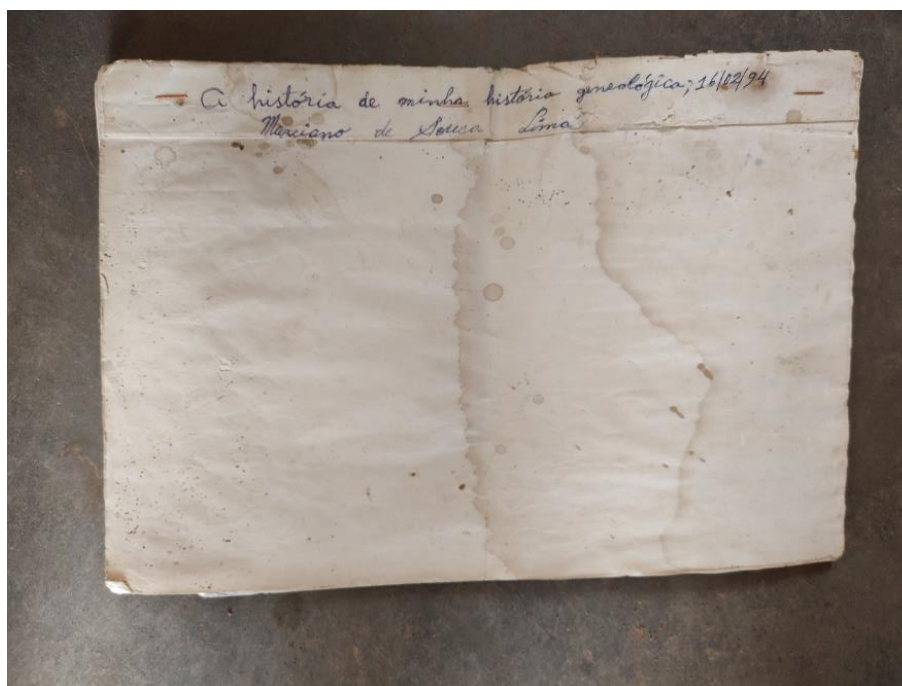 A história de minha história geneológica; 16/02/94
Marciano de Sousa Lima